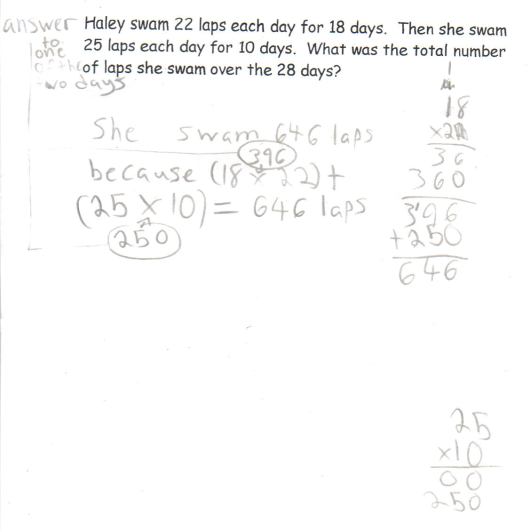 answer
to
one
of the
two days
Haley swam 22 laps each day for 18 days. Then she swam
25 laps each day for 10 days. What was the total number
of laps she swam over the 28 days?
She swam 646 laps
396
because (18 x 22) +
(25 x 10) = 646 laps
250
1
18
x22
36
360
396
+250
646
25
x10
00
250